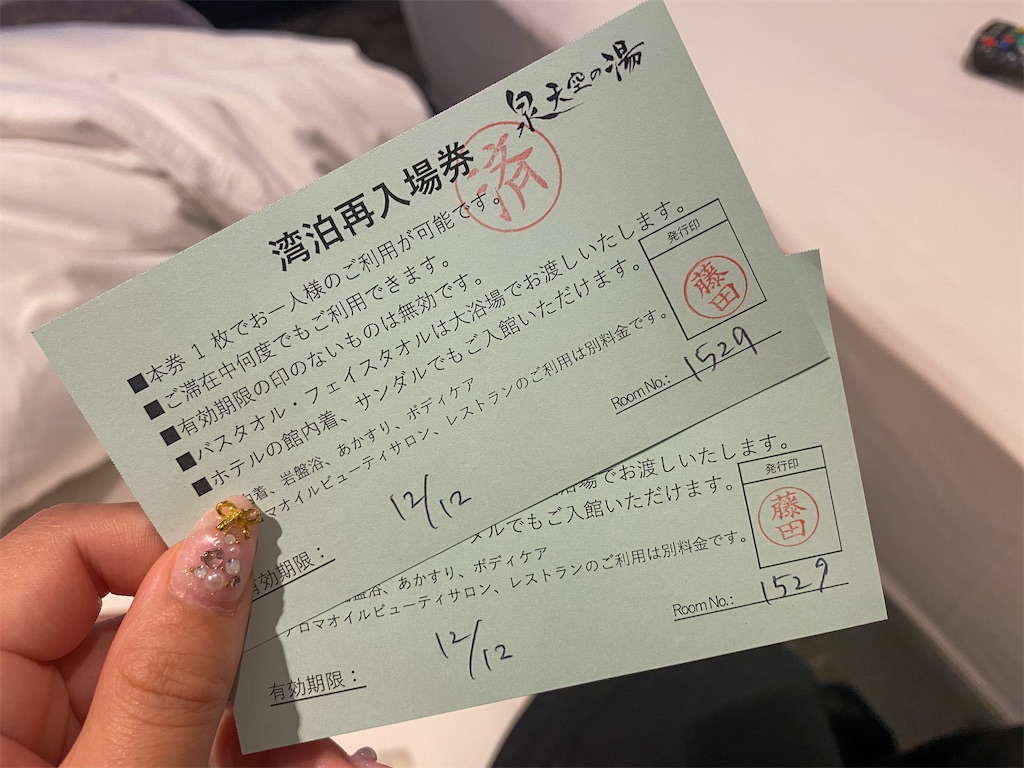 泉天空の湯
済
湾泊再入場券
■本券１枚でお一人様のご利用が可能です。
■ご滞在中何度でもご利用できます。
■有効期限の印のないものは無効です。
■バスタオル・フェイスタオルは大浴場でお渡しいたします。
■ホテルの館内着、サンダルでもご入館いただけます。
内着、岩盤浴、あかすり、ボディケア
ロマオイルビューティサロン、レストランのご利用は別料金です。
発行印
藤田
Room No.: 1529
有効期限： 12/12
浴場でお渡しいたします。
ダルでもご入館いただけます。
盤浴、あかすり、ボディケア
アロマオイルビューティサロン、レストランのご利用は別料金です。
発行印
藤田
Room No.: 1529
有効期限： 12/12